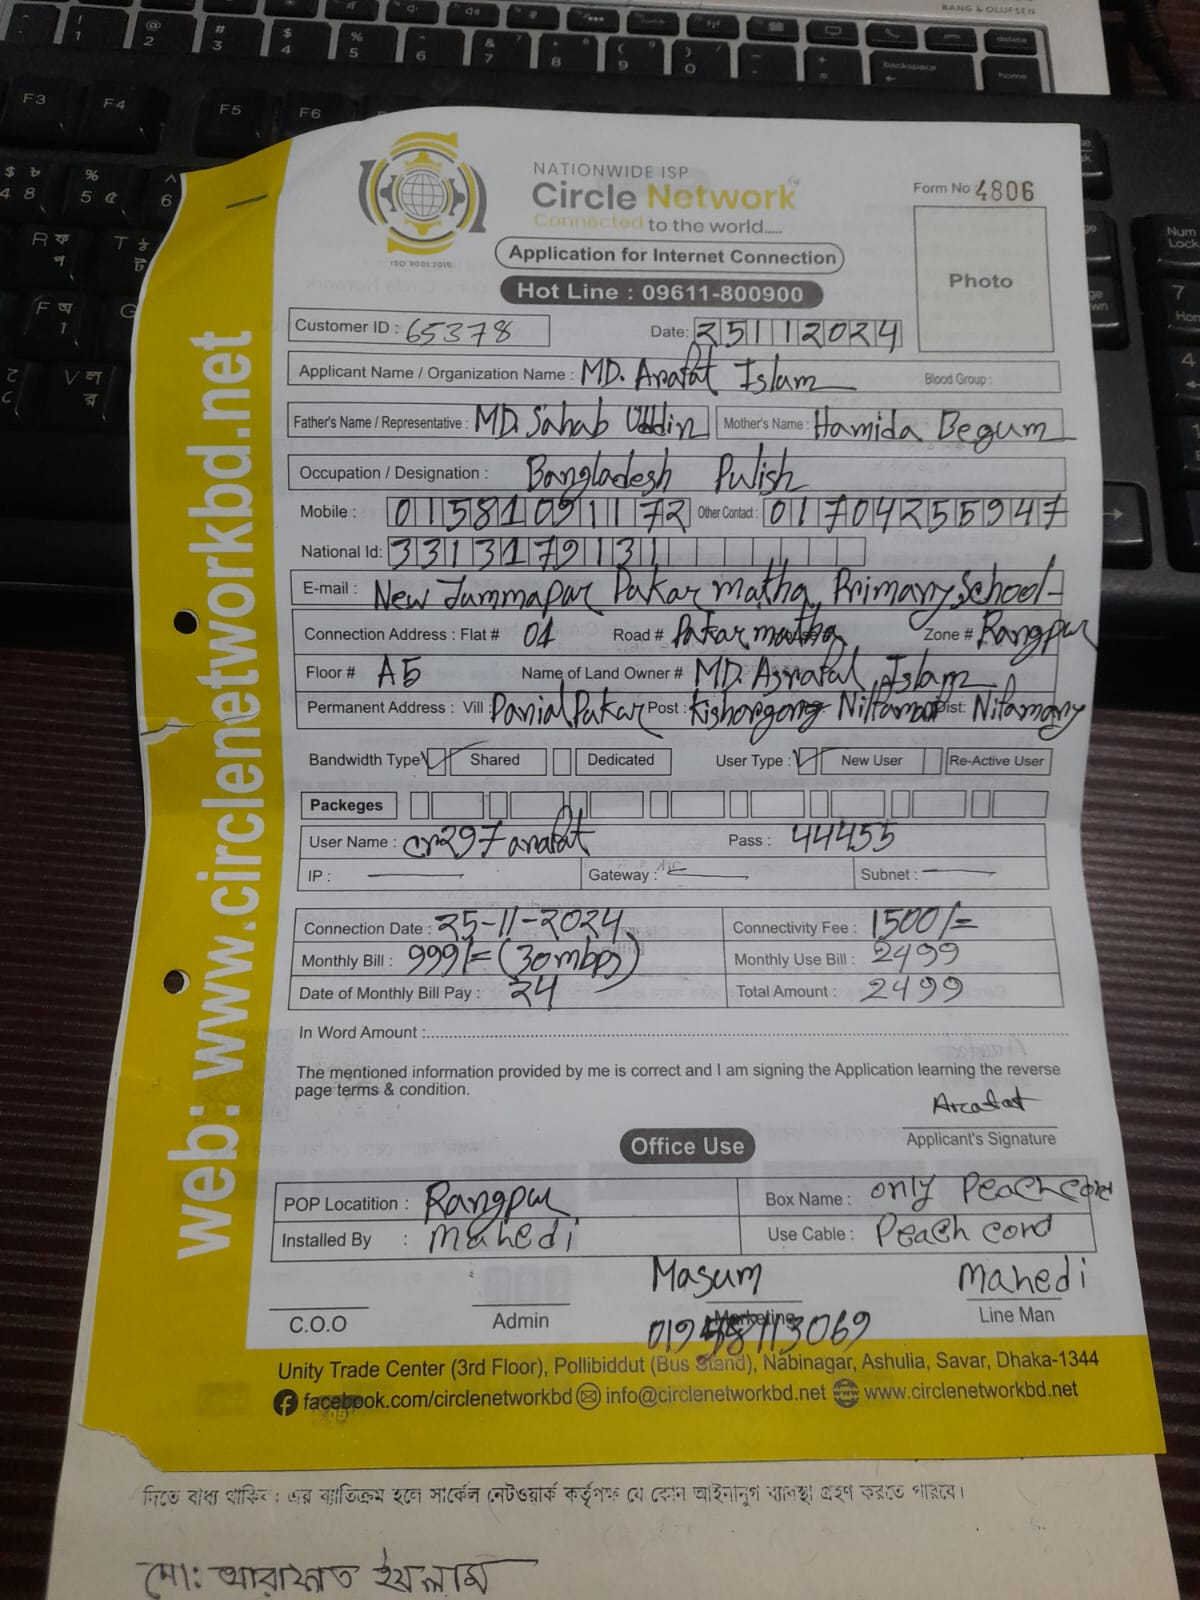 BANG & OLUFSEN
NATIONWIDE ISP
Circle Network
Connected to the world.....
ISO 9001:2015
Application for Internet Connection
Hot Line : 09611-800900
Form No 4806
Photo
Customer ID : 65378 Date: 25112024
Applicant Name / Organization Name : MD. Arafat Islam Blood Group :
Father's Name / Representative : MD. Sahab Uddin Mother's Name : Hamida Begum
Occupation / Designation : Bangladesh Pulish
Mobile : 01581091172 Other Contact : 01704255947
National Id: 3313179131
E-mail : New Jummapar Pakar matha, Primary School-
Connection Address : Flat # 01 Road # Pakar matha Zone # Rangpur
Floor # A5 Name of Land Owner # MD. Asrafal Islam
Permanent Address : Vill : Panial Pakar Post : Kishorgong Dist:
Bandwidth Type Shared Dedicated User Type : New User Re-Active User
Packeges
User Name : cn297arafat Pass : 44455
IP : Gateway : Subnet :
Connection Date : 25-11-2024 Connectivity Fee : 1500/=
Monthly Bill : 999/= (30mbps) Monthly Use Bill : 2499
Date of Monthly Bill Pay : 24 Total Amount : 2499
In Word Amount :
The mentioned information provided by me is correct and I am signing the Application learning the reverse
page terms & condition.
Arafat
Applicant's Signature
Office Use
POP Locatition : Rangpur Box Name : only Peach cord
Installed By : Mahedi Use Cable : Peach cord
Masum Mahedi
C.O.O Admin Marketing Line Man
Unity Trade Center (3rd Floor), Pollibiddut (Bus Stand), Nabinagar, Ashulia, Savar, Dhaka-1344
facebook.com/circlenetworkbd info@circlenetworkbd.net www.circlenetworkbd.net
web: www.circlenetworkbd.net
দিতে বাধ্য থাকিব। এর ব্যতিক্রম হলে সার্কেল নেটওয়ার্ক কর্তৃপক্ষ যে কোন আইনানুগ ব্যবস্থা গ্রহণ করতে পারিবে।
মো: আরাফাত ইসলাম